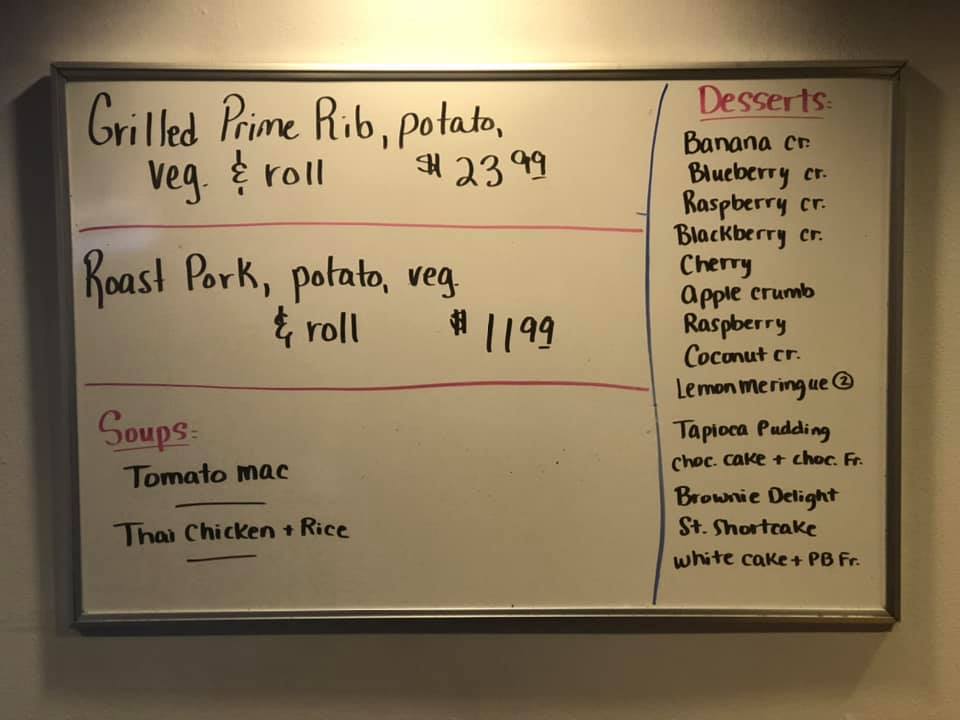 Grilled Prime Rib, potato,
veg. & roll $23.99
Roast Pork, potato, veg.
& roll $11.99
Soups:
Tomato mac
Thai Chicken + Rice
Desserts:
Banana cr.
Blueberry cr.
Raspberry cr.
Blackberry cr.
Cherry
Apple crumb
Raspberry
Coconut cr.
Lemon meringue ②
Tapioca Pudding
choc. cake + choc. Fr.
Brownie Delight
St. Shortcake
white cake + PB Fr.